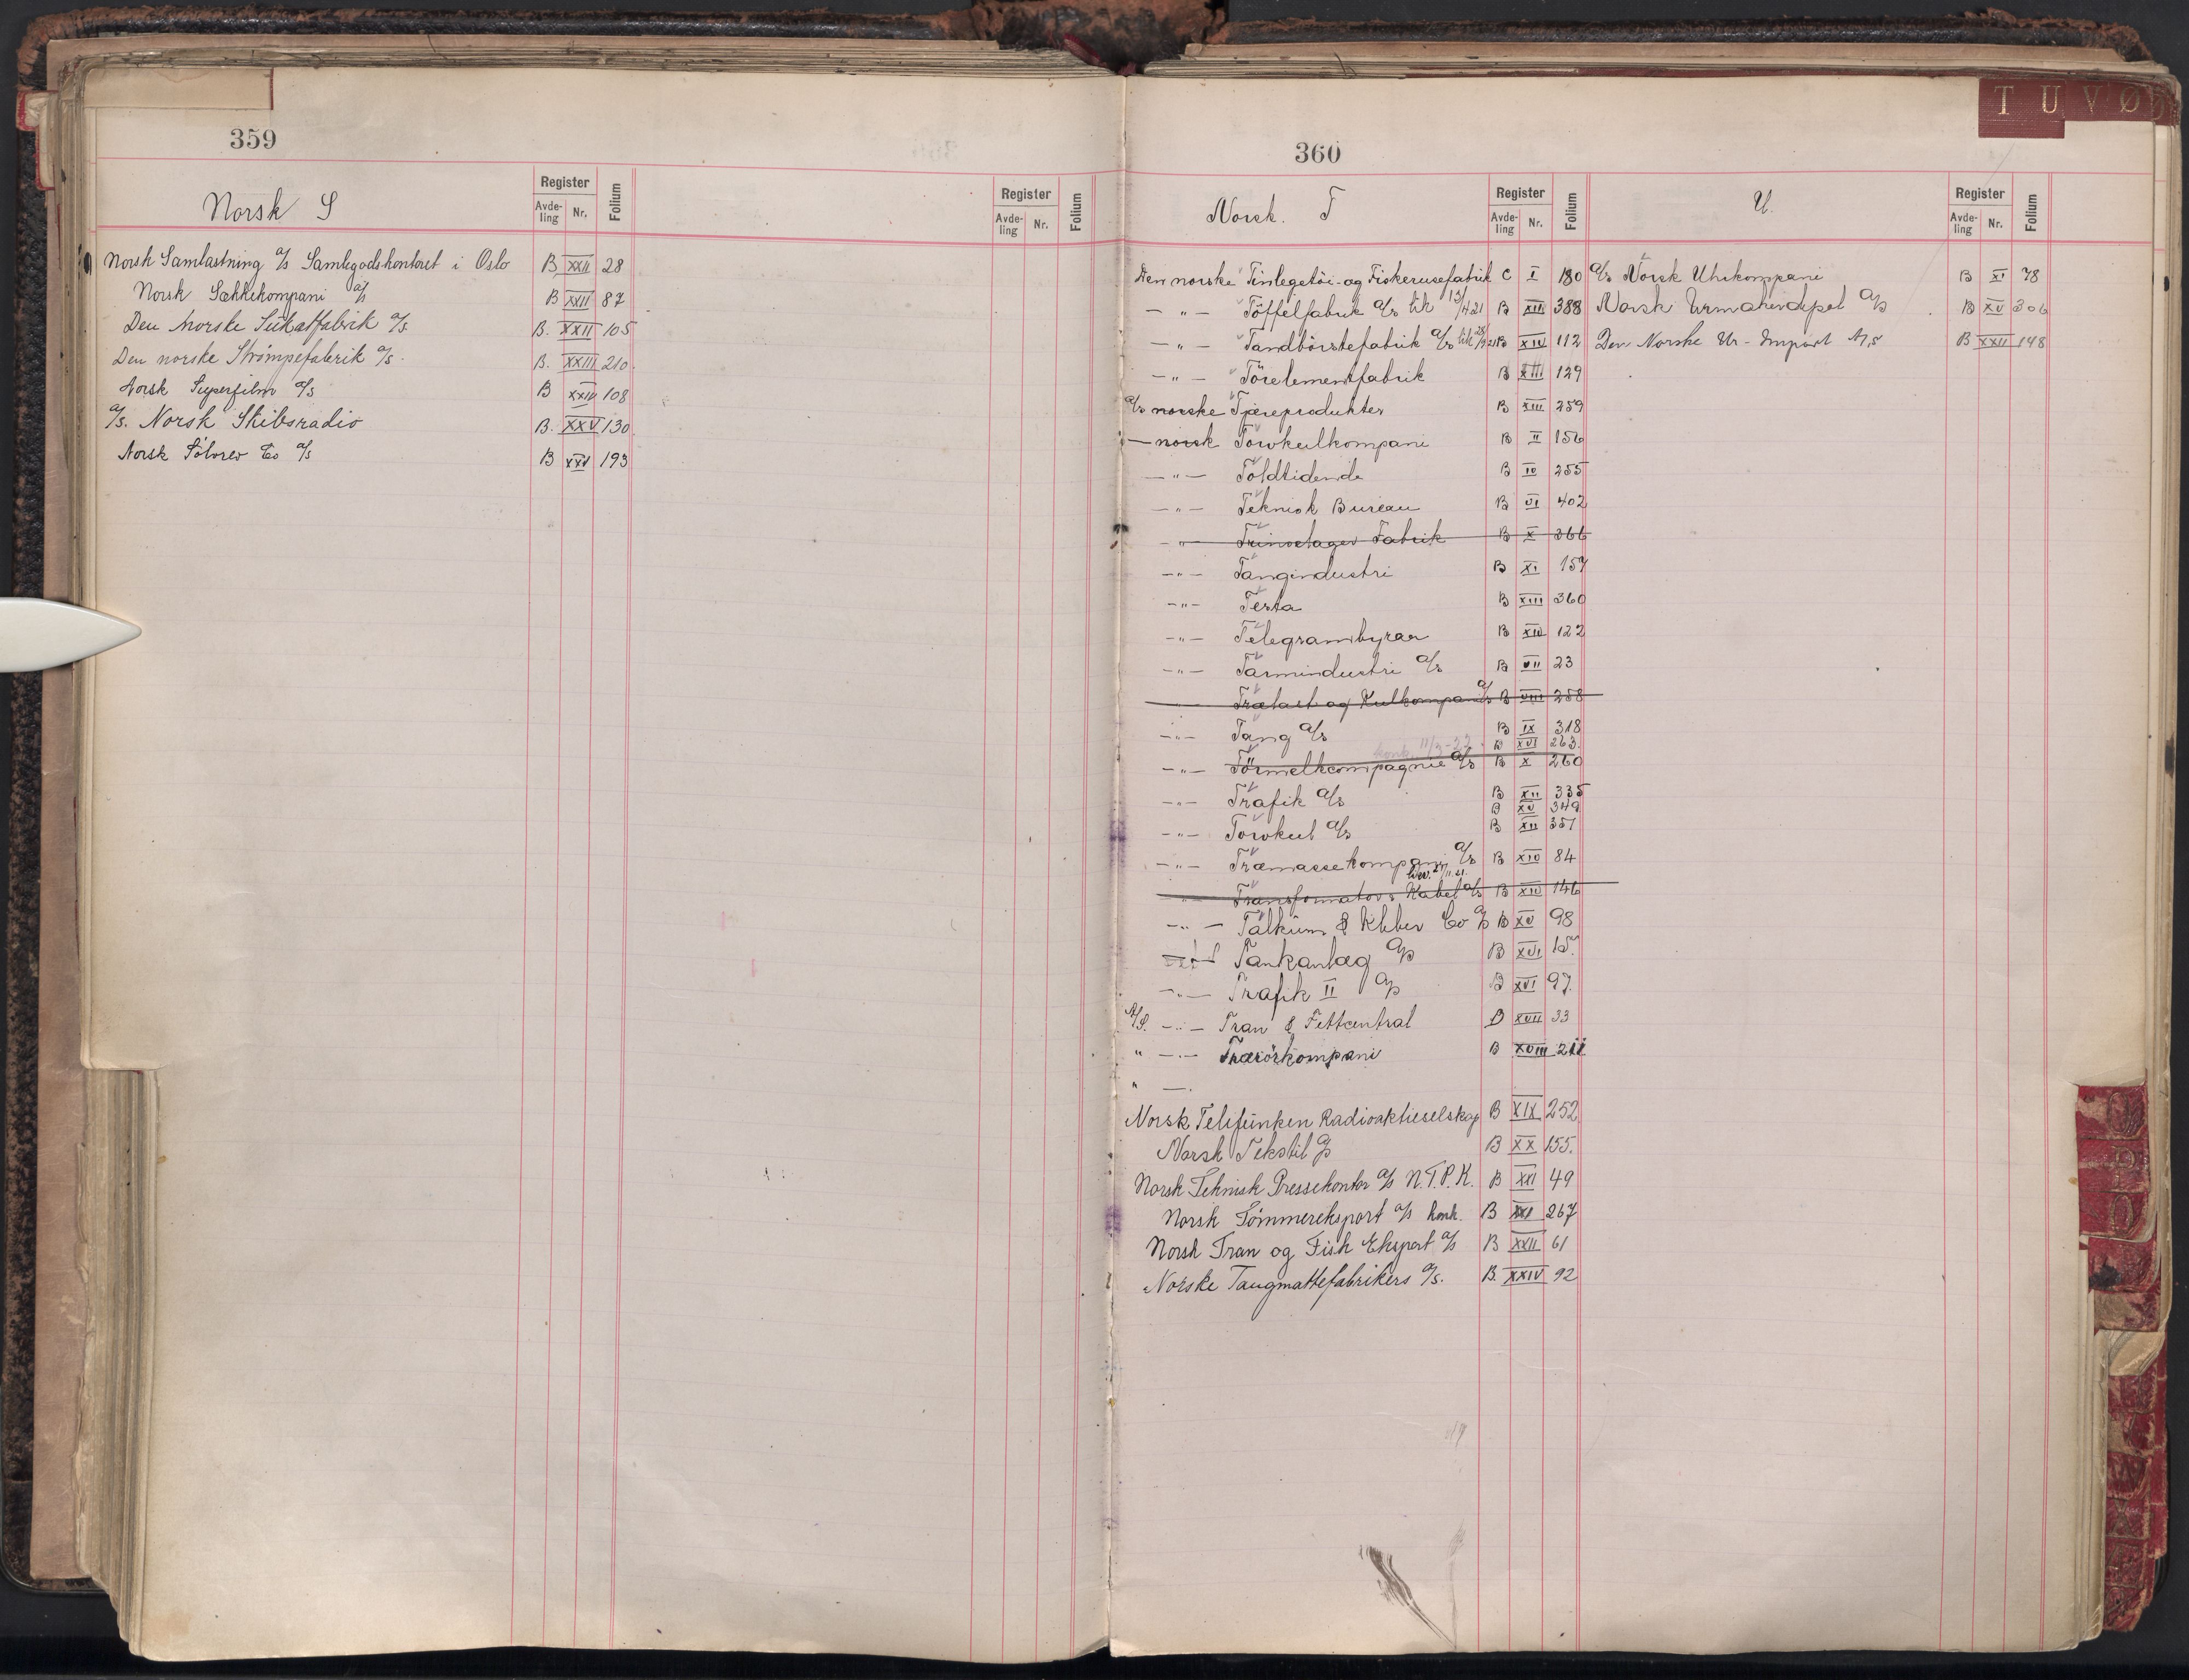 359
Norsk S
Register
Avde-ling Nr. Folium
Register
Avde-ling Nr. Folium
Norsk Samlastning a/s Samlegodskontoret i Oslo B XXII 28
Norsk Sækkekompani a/s B XXII 87
Den Norske Sukatfabrik a/s B. XXII 105
Den norske Strømpefabrik a/s. B. XXIII 210
Norsk Superfilm a/s B XXIV 108
a/s. Norsk Skibsradio B. XXV 130
Norsk Sølvrev Co a/s B XXV 193
T U V Ø
360
Norsk. T
Register
Avde-ling Nr. Folium
U.
Register
Avde-ling Nr. Folium
Den norske Tinlegetöi- og Fiskerusefabrik C I 180
— " — Töffelfabrik a/s lik 13/4 21 B XIII 388
— " — Tandbörstefabrik a/s lik B XIV 112
— " — Törelementfabrik B XIII 129
a/s norske Tjæreprodukter B XIII 259
— norsk Torvkulkompani B II 156
— " — Toldtidende B IV 255
— " — Teknisk Bureau B VI 402
— " — Fabrik B X 366
— " — Tangindustri B XI 157
— " — Testa B XIII 360
— " — Telegrambyraa B XIV 122
— " — Tarmindustri a/s B VII 23
Trælast og Kulkompani a/s B VIII 258
— " — Tang a/s B IX 318
konk. 11/3-22 B XVI 263.
— " — Törmelkcompagnie a/s B X 260
— " — Trafik a/s B XII 335
B XV 349
— " — Torvkul a/s B XII 351
— " — Træmassekompani a/s B XIV 84
Transformator & Kabel a/s B XIV 146
— " — Talkum & Kleber Co a/s B XV 98
Tankanlæg a/s B XVI 15.
— " — Trafik II a/s B XVI 97.
A/S. — " — Tran & Fettcentral B XVII 33
" — " — Trærörkompani B XVIII 211
" — .
Norsk Telefunken Radioaktieselskap B XIX 252
Norsk Tekstil a/s B XX 155.
Norsk Teknisk Pressekontor a/s N.T.P.K. B XXI 49
Norsk Tömmereksport a/s konk. B XXI 267
Norsk Tran og Fisk Eksport a/s B XXII 61
Norske Taugmattefabrikers a/s. B. XXIV 92
a/s Norsk Uhrkompani B XI 78
Norsk Urmakerdepot a/s B XV 306
Den Norske Ur-Import A/S B XXII 148